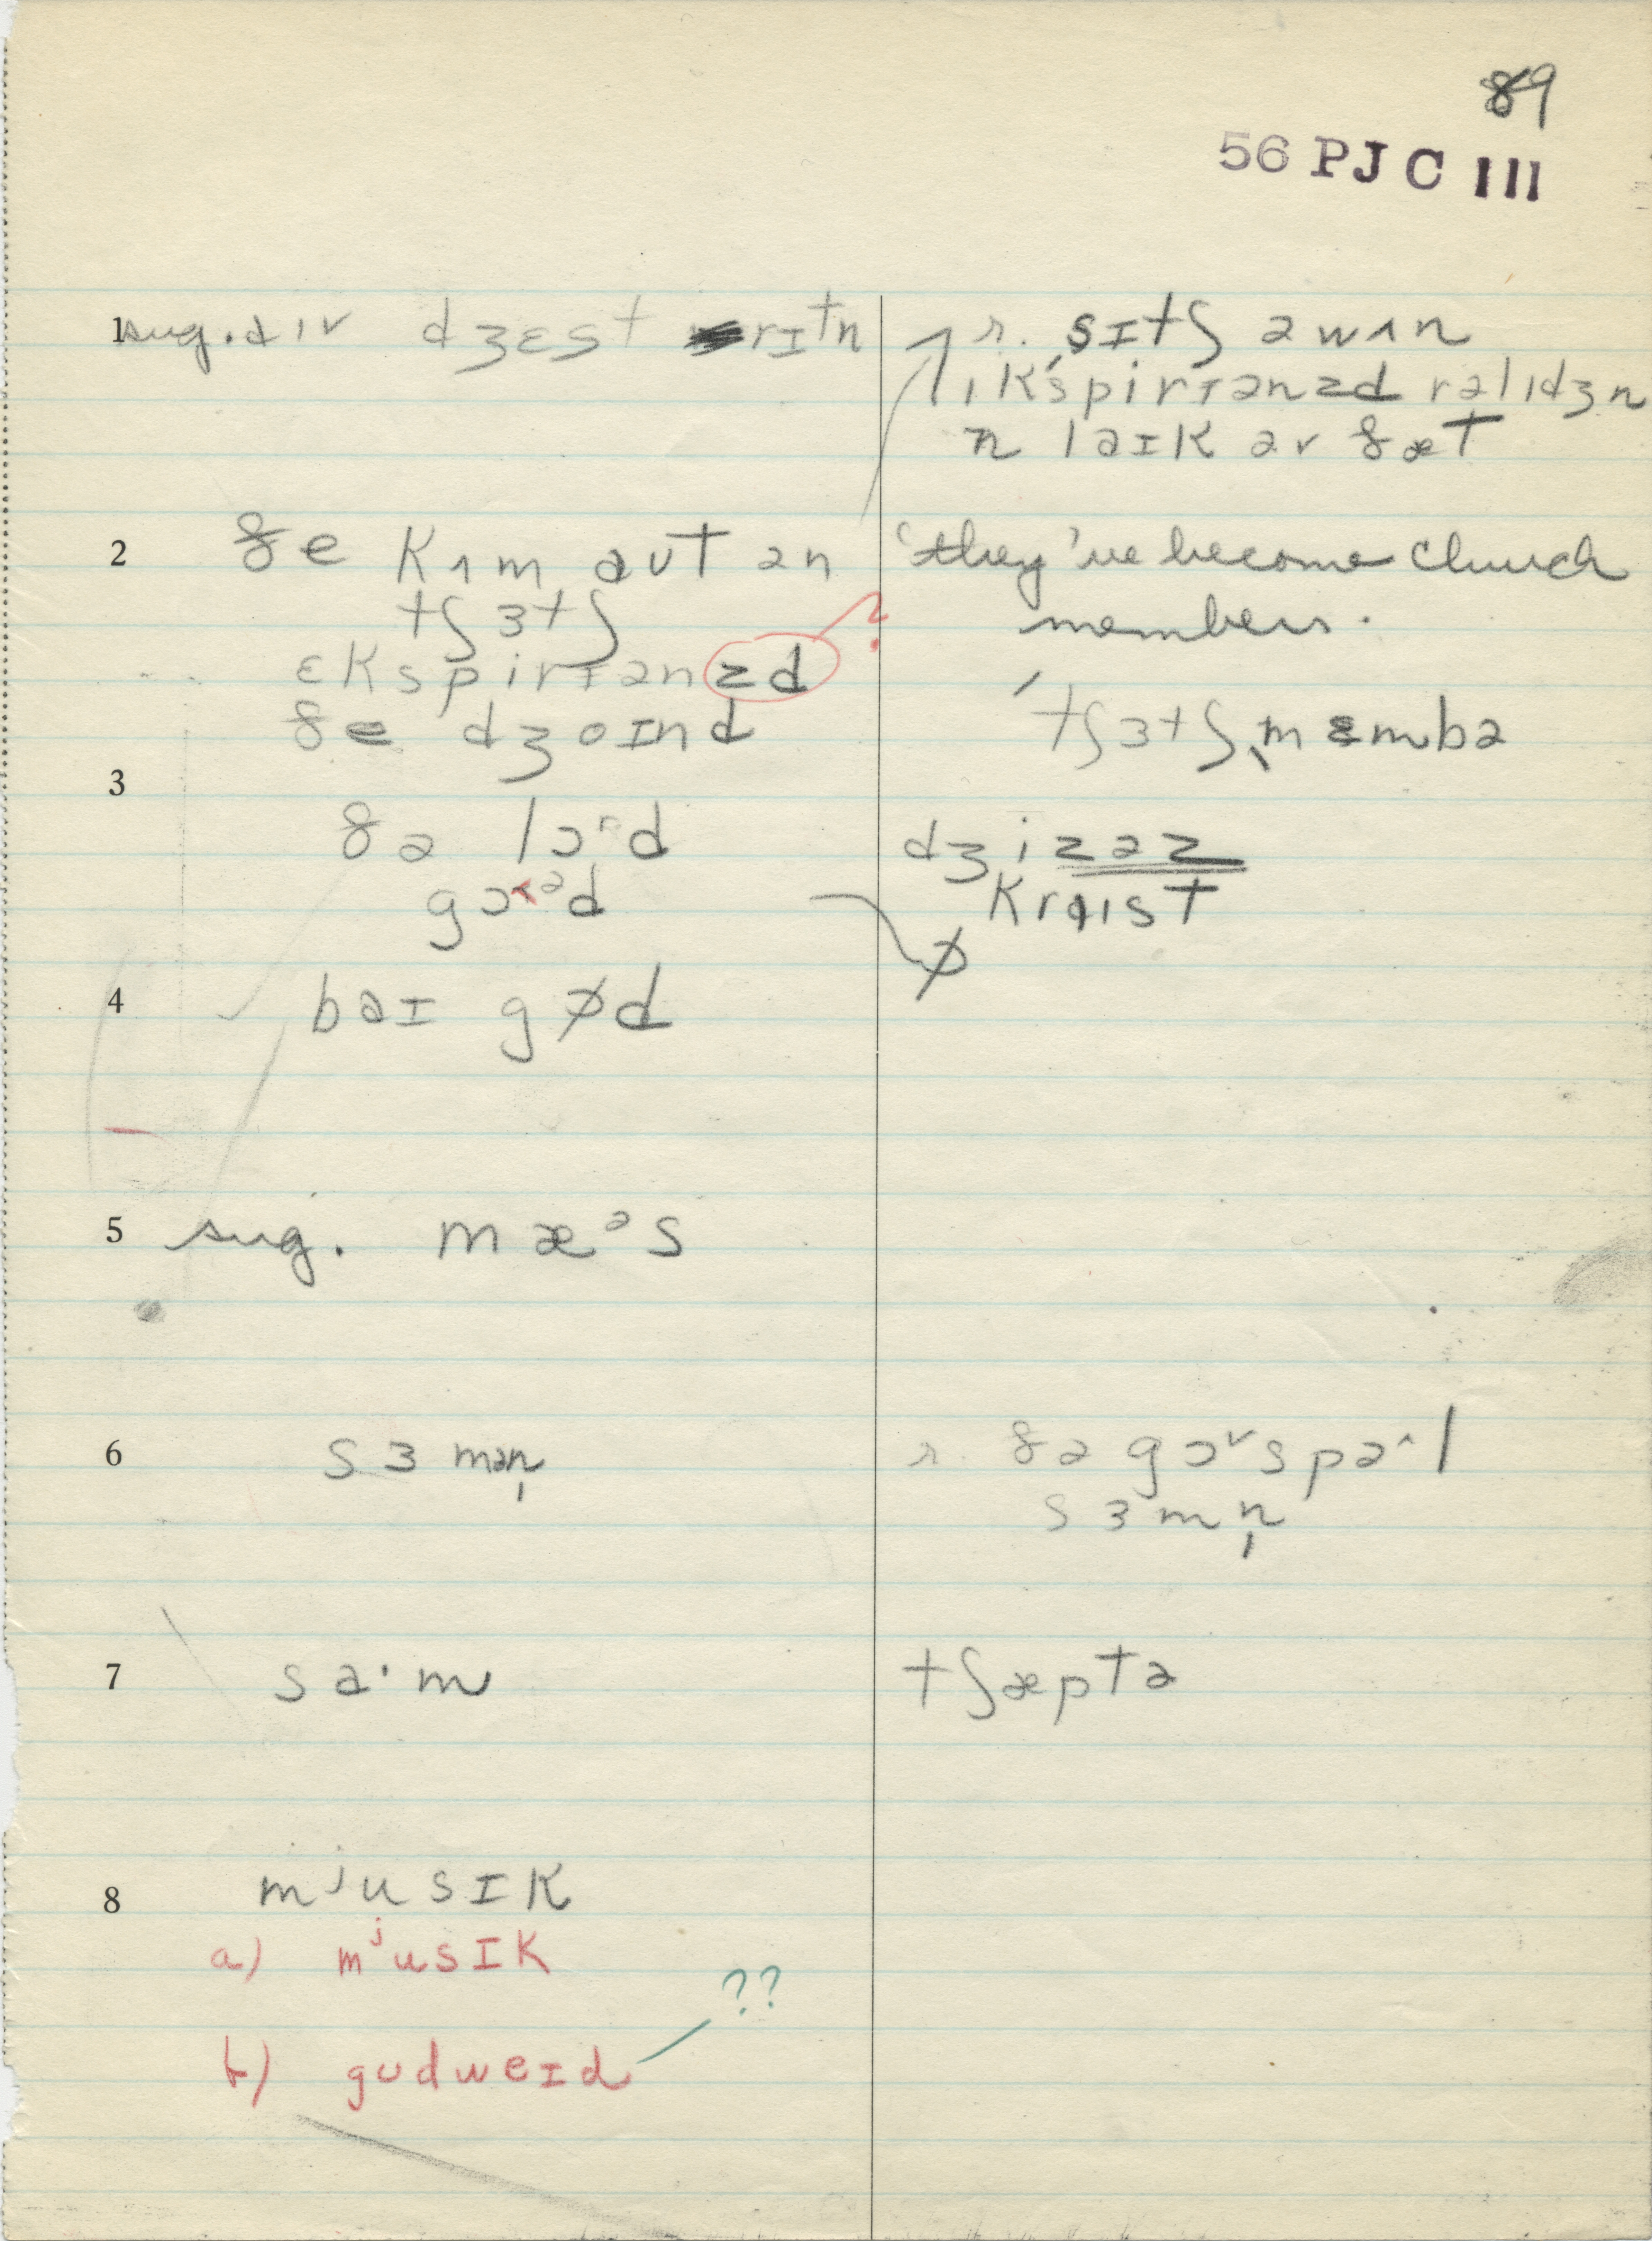 89
56 PJC III
1 sug. dɪv dʒɛst rɪtn
r. sɪtʃ ə wʌn
ɪk'spirɪənzd rəlɪdʒn
n laɪk əv ðæt
2 ðe kʌm aʊt ən
tʃɜtʃ
ɛkspirɪənzd ?
ðe dʒoɪnd
'they've become church
members.
'tʃɜtʃˌmɛmbə
3
ðə lɔrd
gɔəd
dʒizəz
kraɪst
ø
4 baɪ gød
5 sug. mæəs
6 sɜmən̩
r. ðə gɔvspəʌl
sɜmn̩
7 sa·m
tʃæptə
8 mʲusɪk
a) mʲusɪk
b) gʊdweɪd ??